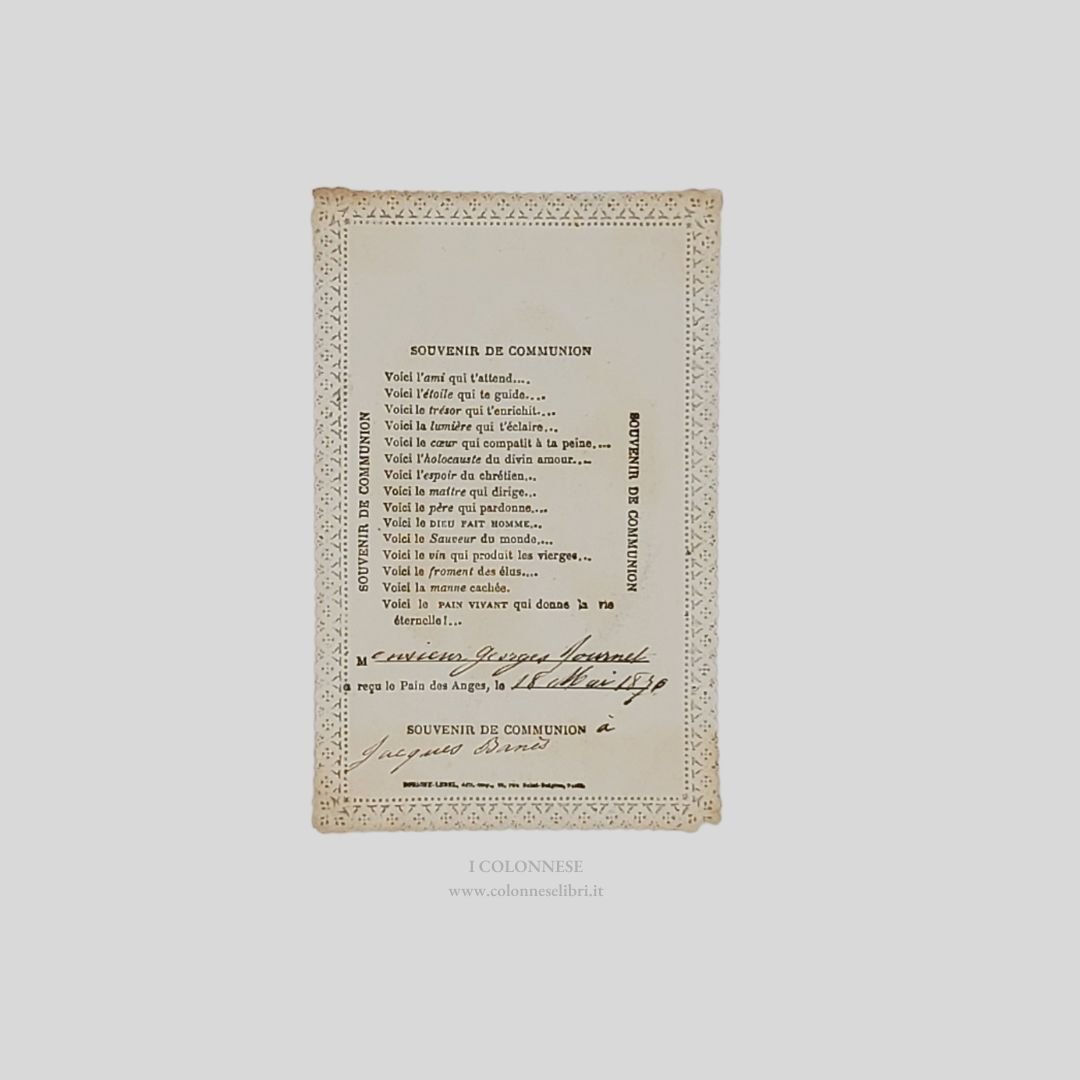 SOUVENIR DE COMMUNION
Voici l'ami qui t'attend....
Voici l'étoile qui te guide....
Voici le trésor qui t'enrichit....
Voici la lumière qui t'éclaire...
Voici le cœur qui compatit à ta peine....
Voici l'holocauste du divin amour....
Voici l'espoir du chrétien...
Voici le maître qui dirige...
Voici le père qui pardonne....
Voici le DIEU FAIT HOMME...
Voici le Sauveur du monde....
Voici le vin qui produit les vierges...
Voici le froment des élus....
Voici la manne cachée.
Voici le PAIN VIVANT qui donne la vie
éternelle!...
SOUVENIR DE COMMUNION
SOUVENIR DE COMMUNION
Monsieur Georges Journel
a reçu le Pain des Anges, le 18 Mai
SOUVENIR DE COMMUNION à
Jacques
I COLONNESE
www.colonneselibri.it